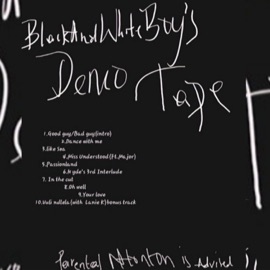 BlackAndWhiteBoy's
Demo
Tape
1.Good guy/Bad guy(intro)
2.Dance with me
3.like Sea
4.Miss Understood (Ft.Major)
5.Passionland
6.Kyle's 3rd Interlude
7. In the cut
8.Oh well
9.Your love
10.Vuli ndlela(with Lanie K)bonus track
Parental Attention is Advised